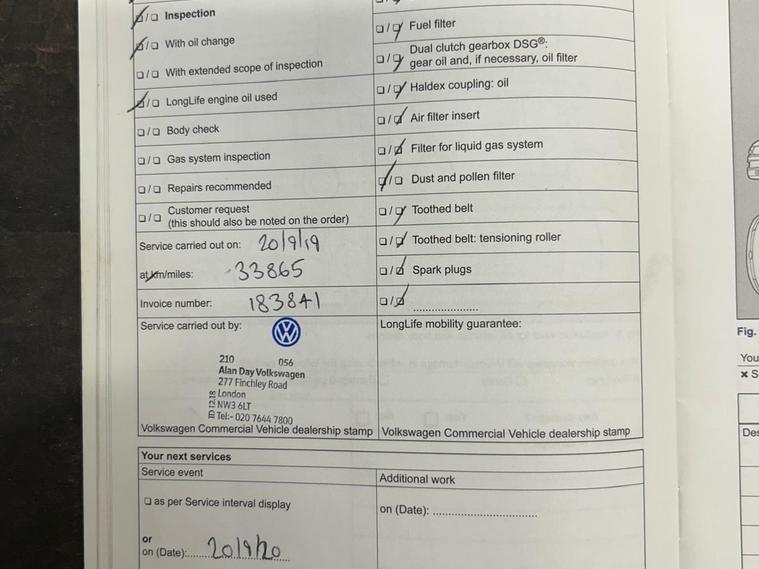 Inspection
With oil change
With extended scope of inspection
LongLife engine oil used
Body check
Gas system inspection
Repairs recommended
Customer request
(this should also be noted on the order)
Service carried out on: 20/9/19
at km/miles: 33865
Invoice number: 183841
Service carried out by:
210 056
Alan Day Volkswagen
277 Finchley Road
London
NW3 6LT
Tel:- 020 7644 7800
Volkswagen Commercial Vehicle dealership stamp
Fuel filter
Dual clutch gearbox DSG®:
gear oil and, if necessary, oil filter
Haldex coupling: oil
Air filter insert
Filter for liquid gas system
Dust and pollen filter
Toothed belt
Toothed belt: tensioning roller
Spark plugs
LongLife mobility guarantee:
Volkswagen Commercial Vehicle dealership stamp
Your next services
Service event
as per Service interval display
or
on (Date): 20/9/20
Additional work
on (Date):
Fig.
You
× S
Des